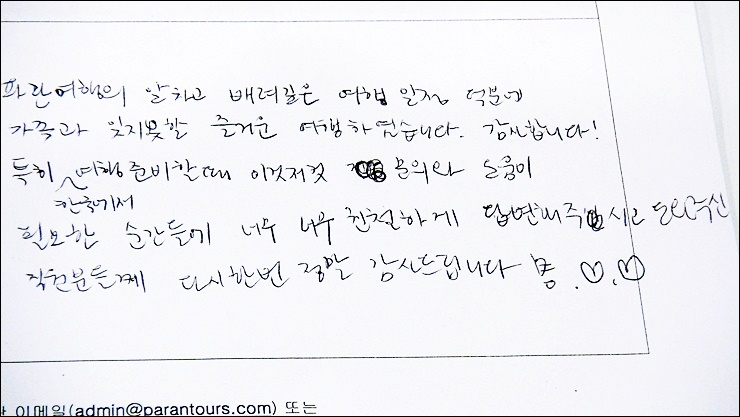 파란여행의 알차고 배려깊은 여행 일정 덕분에
가족과 잊지못할 즐거운 여행하였습니다. 감사합니다!
특히 여행준비할때 이것저것 문의와 도움이
한국에서
필요한 순간들에 너무 너무 친절하게 답변해주시고 도와주신
직원분들께 다시한번 정말 감사드립니다 ♡.♡
이메일(admin@parantours.com) 또는